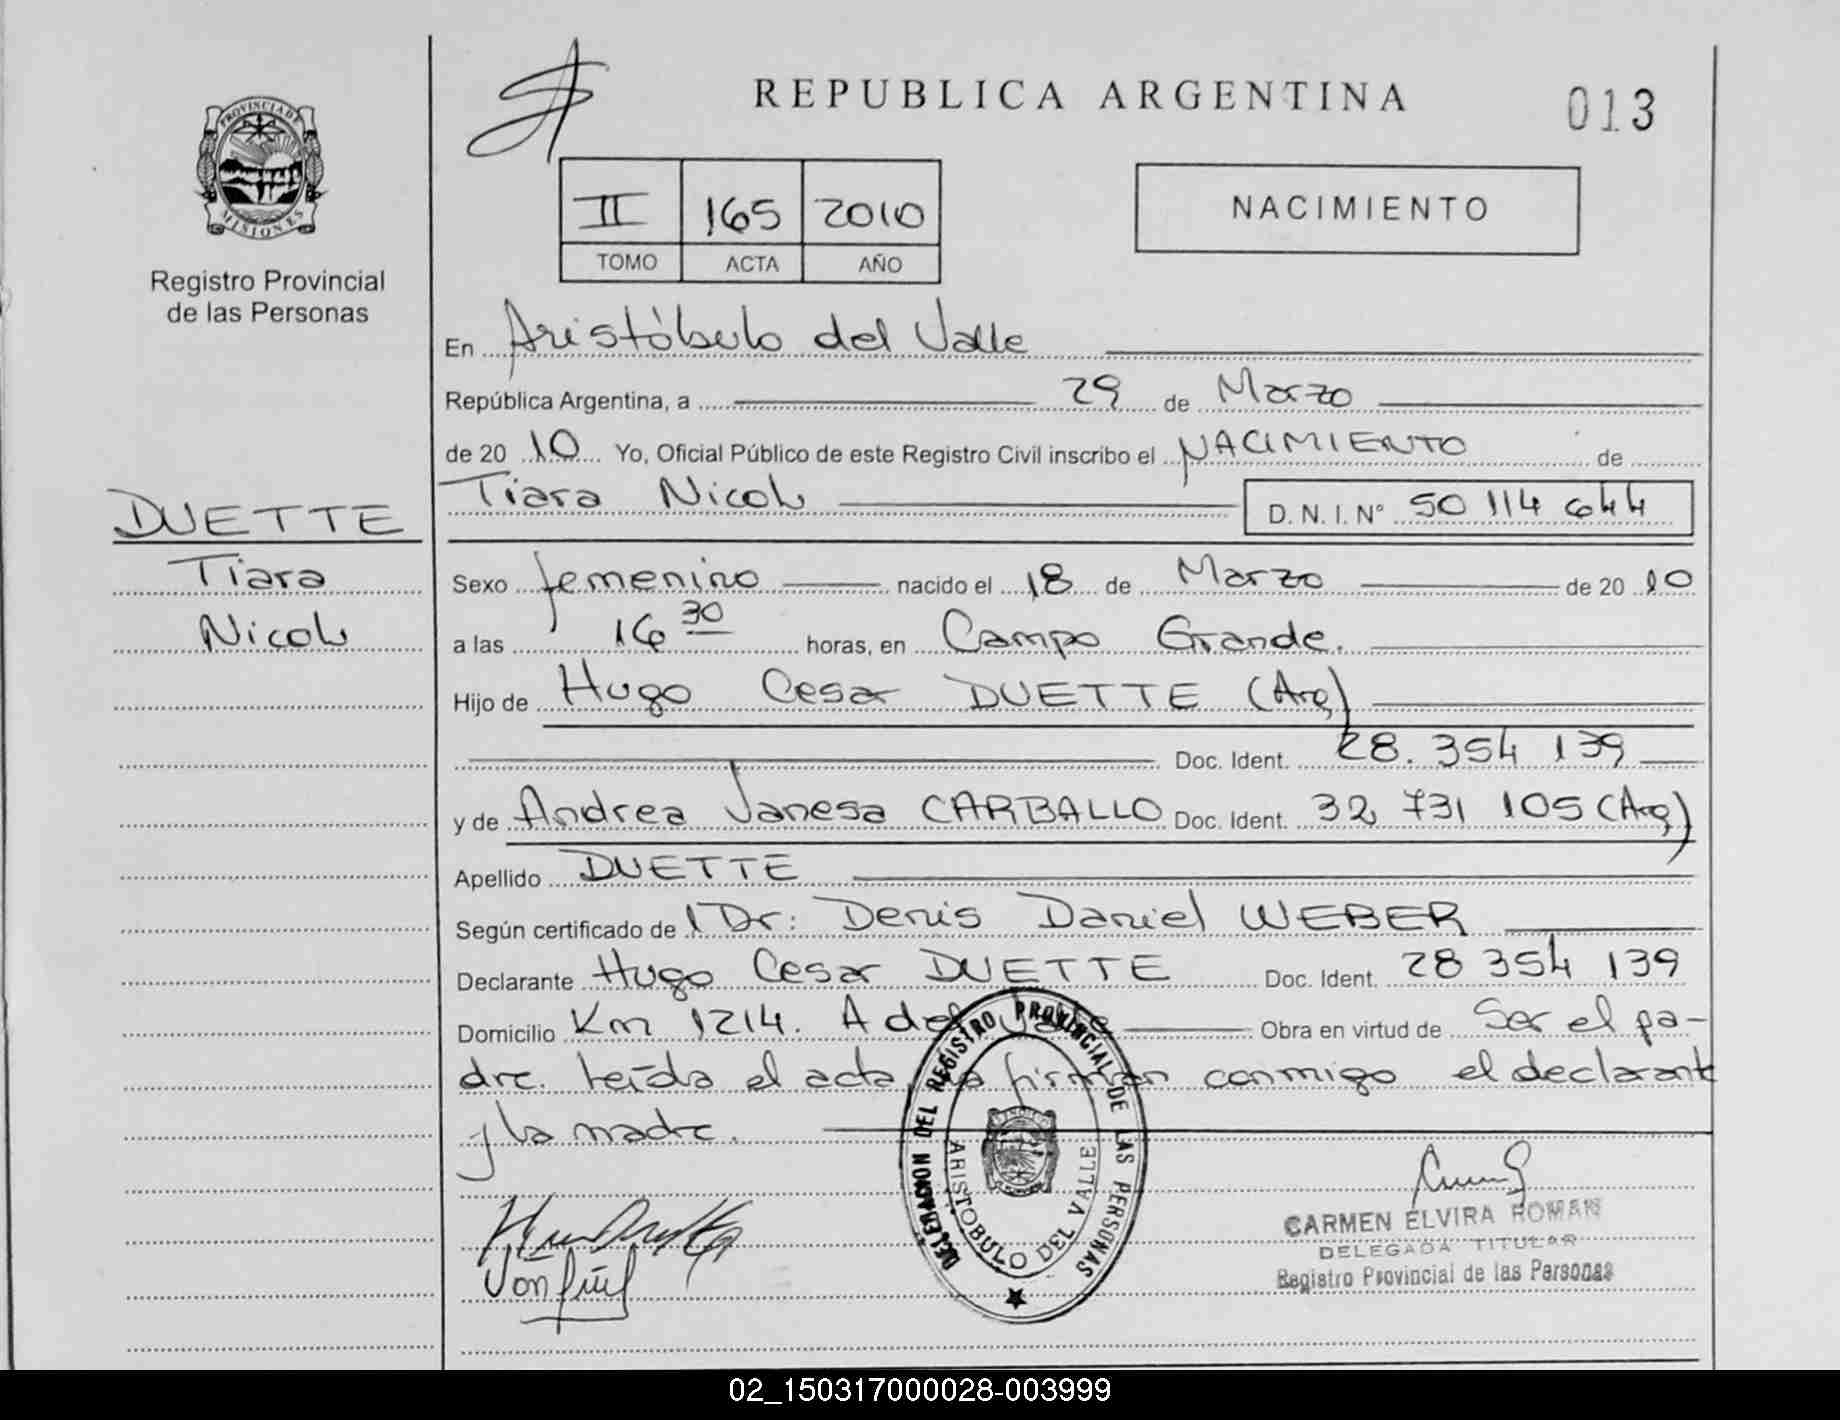 REPUBLICA ARGENTINA
013
PROVINCIA DE
MISIONES
Registro Provincial
de las Personas
II 165 2010
TOMO ACTA AÑO
NACIMIENTO
En Aristóbulo del Valle
República Argentina, a 29 de Marzo
de 20 10 Yo, Oficial Público de este Registro Civil inscribo el NACIMIENTO de
Tiara Nicole D. N. I. N° 50 114 644
DUETTE
Tiara
Nicole
Sexo femenino nacido el 18 de Marzo de 20 10
a las 16 30 horas, en Campo Grande.
Hijo de Hugo Cesar DUETTE (Arg)
Doc. Ident. 28. 354 139
y de Andrea Vanesa CARBALLO Doc. Ident. 32 731 105 (Arg)
Apellido DUETTE
Según certificado de Dr: Denis Daniel WEBER
Declarante Hugo Cesar DUETTE Doc. Ident. 28 354 139
Domicilio Km 1214. A del Valle Obra en virtud de Ser el pa-
dre. Leída el acta, la firman conmigo el declarante
y la madre.
DELEGACION DEL REGISTRO PROVINCIAL DE LAS PERSONAS
ARISTOBULO DEL VALLE
CARMEN ELVIRA ROMAN
DELEGADA TITULAR
Registro Provincial de las Personas
02_150317000028-003999